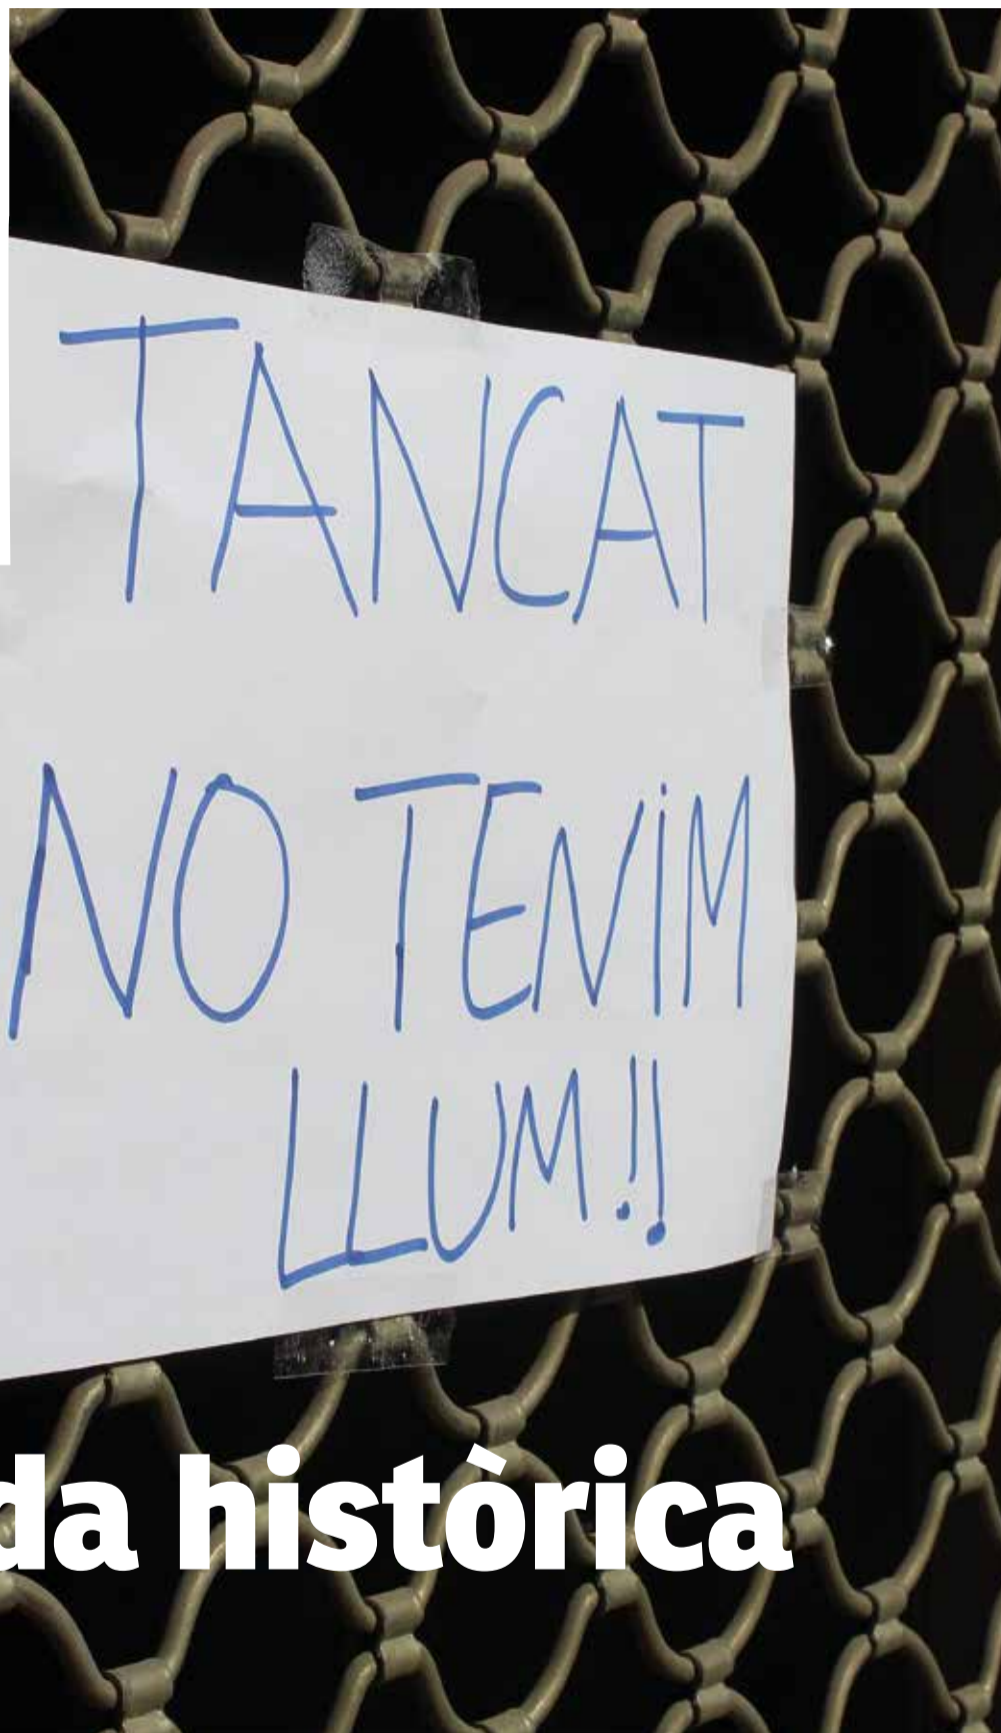 TANCAT
NO TENIM
LLUM!!
da històrica